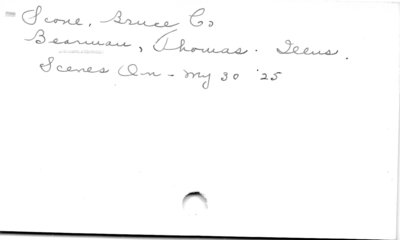 Scone, Bruce Co
Bearman, Thomas. Illus.
Scenes On - My 30 '25